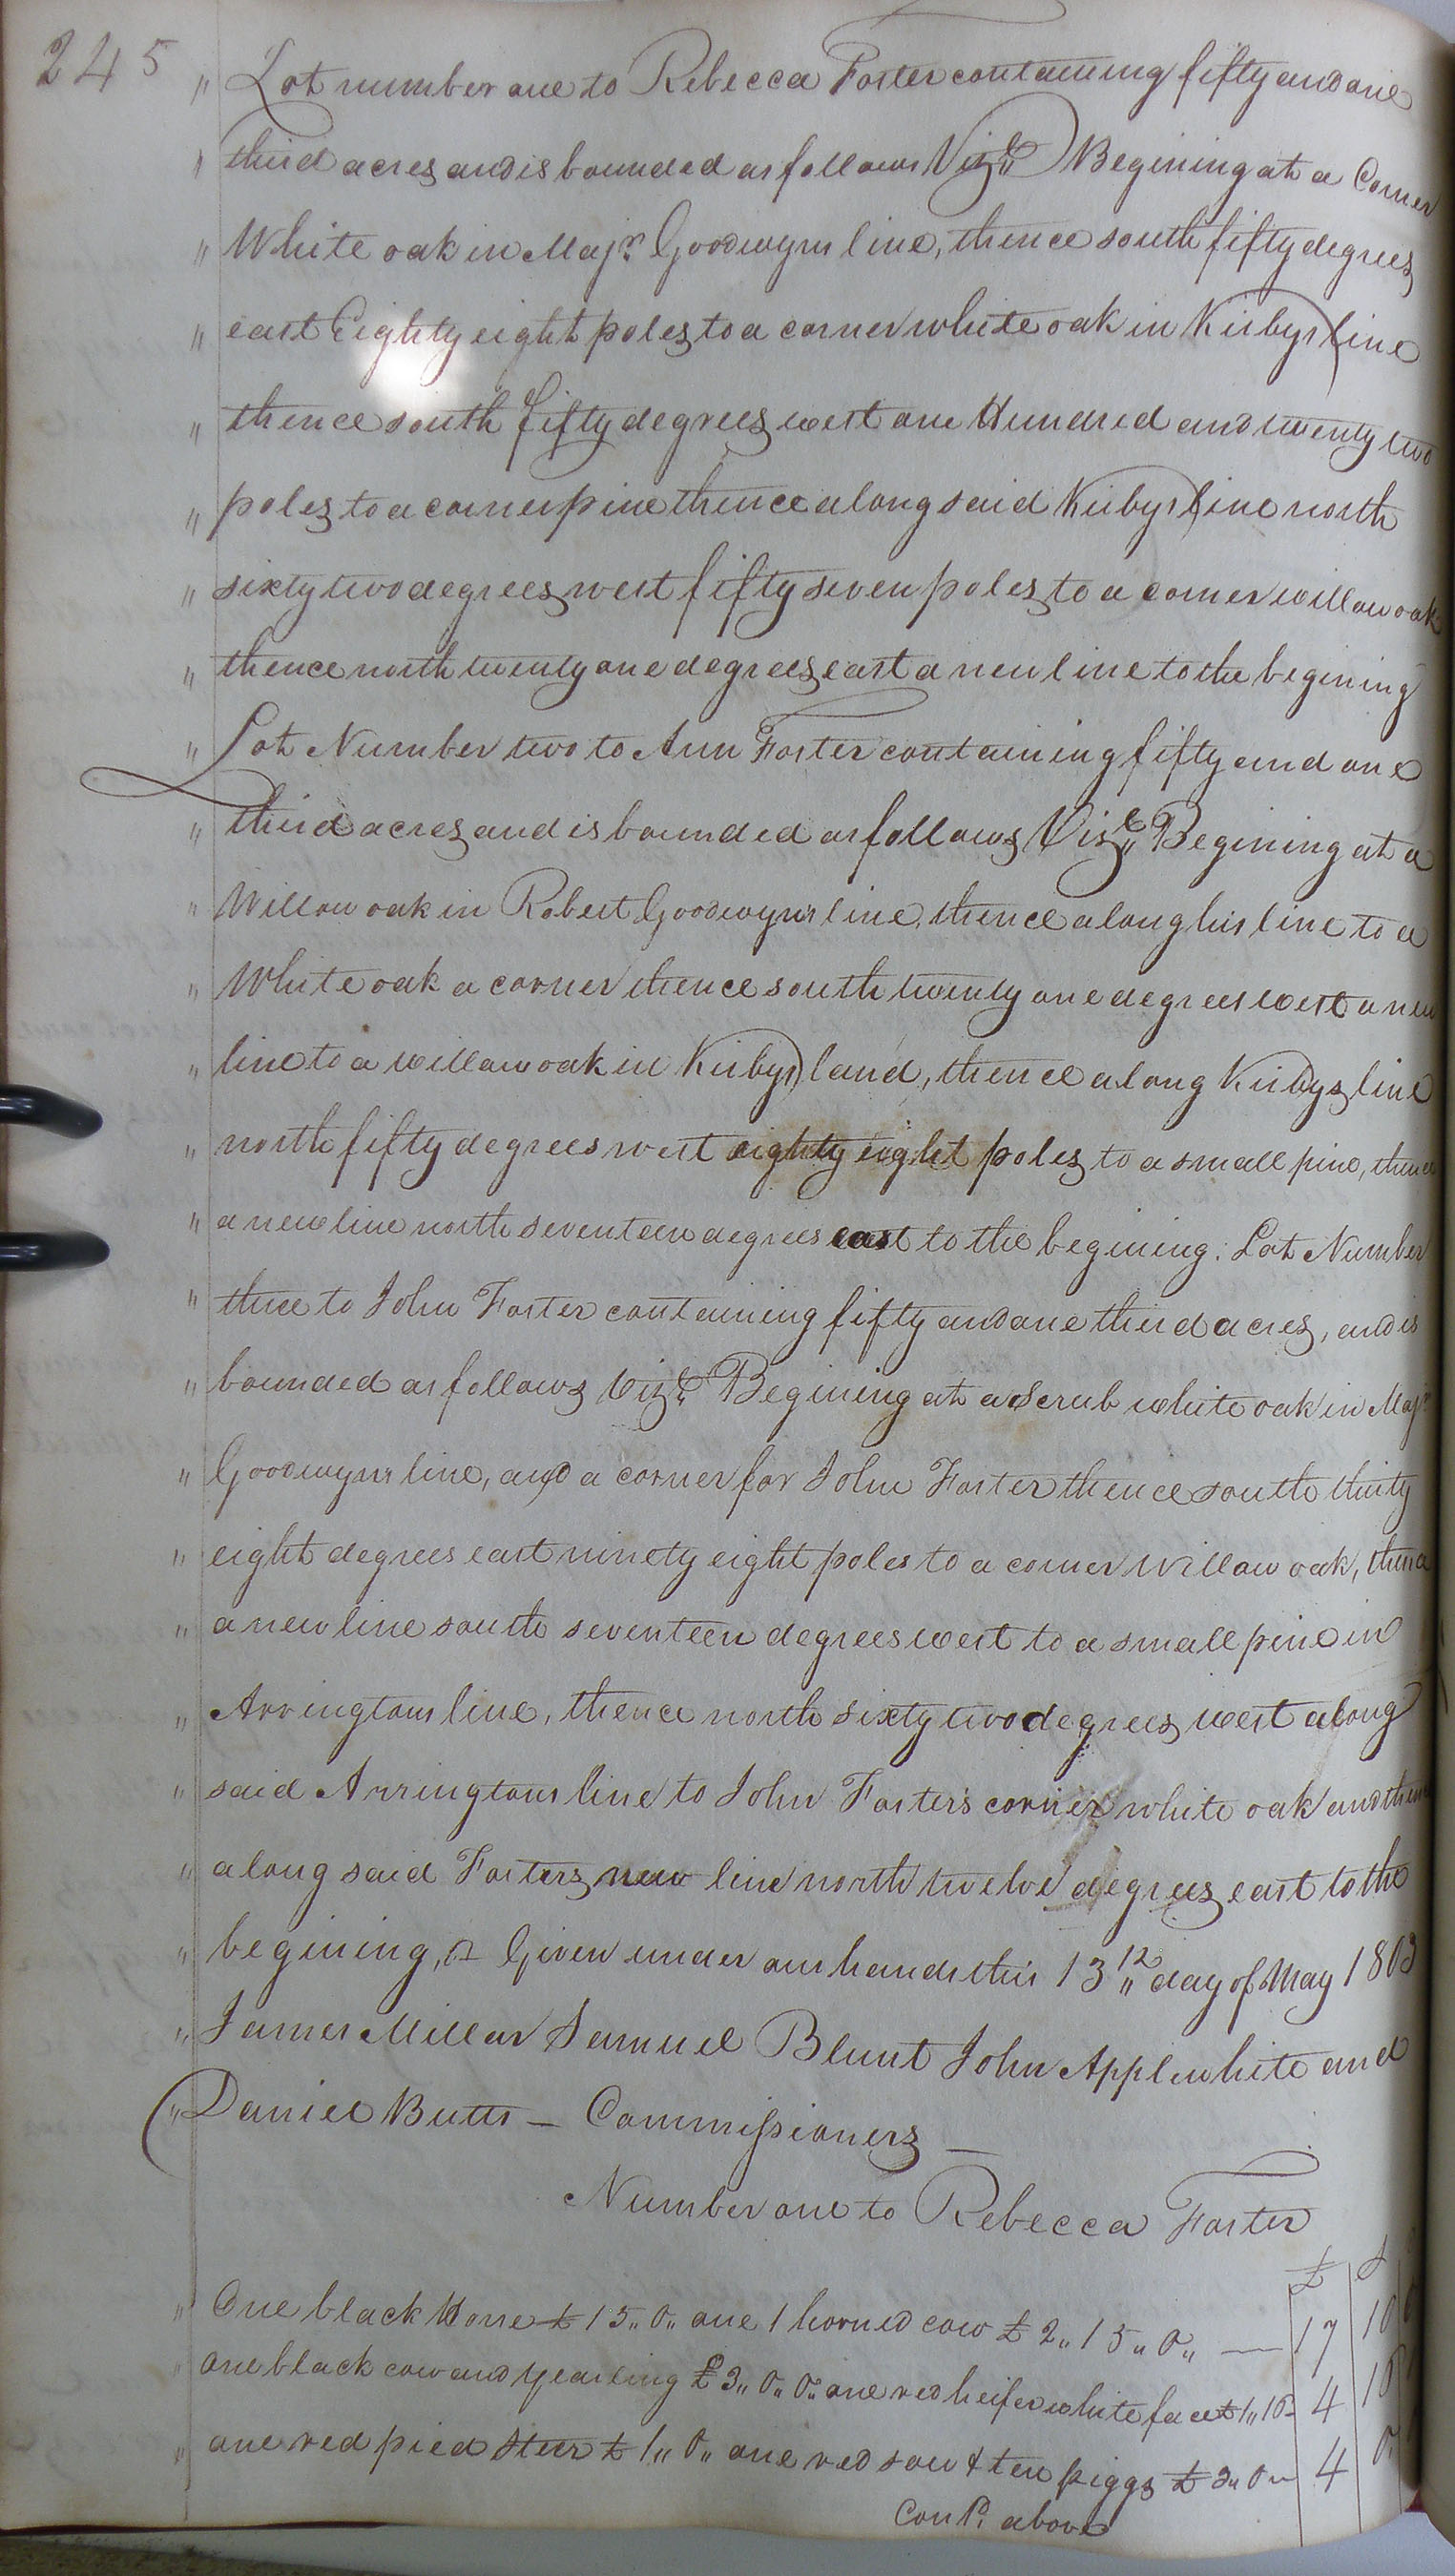 245
" Lot number one to Rebecca Foster containing fifty and one
" third acres and is bounded as follows Vizt. Begining at a Corner
" White oak in Majr. Goodwyns line, thence south fifty degrees
" east Eighty eight poles to a corner white oak in Kirbys line
" thence south fifty degrees west one Hundred and twenty two
" poles to a corner pine thence along said Kirbys line north
" sixty two degrees west fifty seven poles to a corner willow oak
" thence north twenty one degrees east a new line to the begining
" Lot Number two to Ann Foster containing fifty and one
" third acres and is bounded as follows Vizt. Begining at a
" Willow oak in Robert Goodwyn's line, thence along his line to a
" White oak a corner thence south twenty one degrees west a new
" line to a willow oak in Kirbys land, thence along Kirbys line
" north fifty degrees west eighty eight poles to a small pine, thence
" a new line north seventeen degrees east to the begining. Lot Number
" three to John Foster containing fifty and one third acres, and is
" bounded as follows Vizt. Begining at a Scrub white oak in Majr
" Goodwyns line, and a corner for John Foster thence south thirty
" eight degrees east ninety eight poles to a corner willow oak, thence
" a new line south seventeen degrees west to a small pine in
" Arringtons line, thence north sixty two degrees west along
" said Arringtons line to John Foster's corner white oak and thence
" along said Fosters new line north twelve degrees east to the
" begining, & Given under our hands this 13th day of May 1803
" James Millar Samuel Blunt John Applewhite and
" Daniel Butts – Commissioners –
Number one to Rebecca Foster
£ S
" One black Horse £ 15,, 0,, one 1 horned cow £ 2,, 15,, 0,, — 17 10
" one black cow and yearling £ 3,, 0,, 0,, one red heifer white face £ 1,, 10 – 4 10
" one red pied steer £ 1,, 0,, one red sow & ten piggs £ 3,, 0 – 4 0
Cond. above